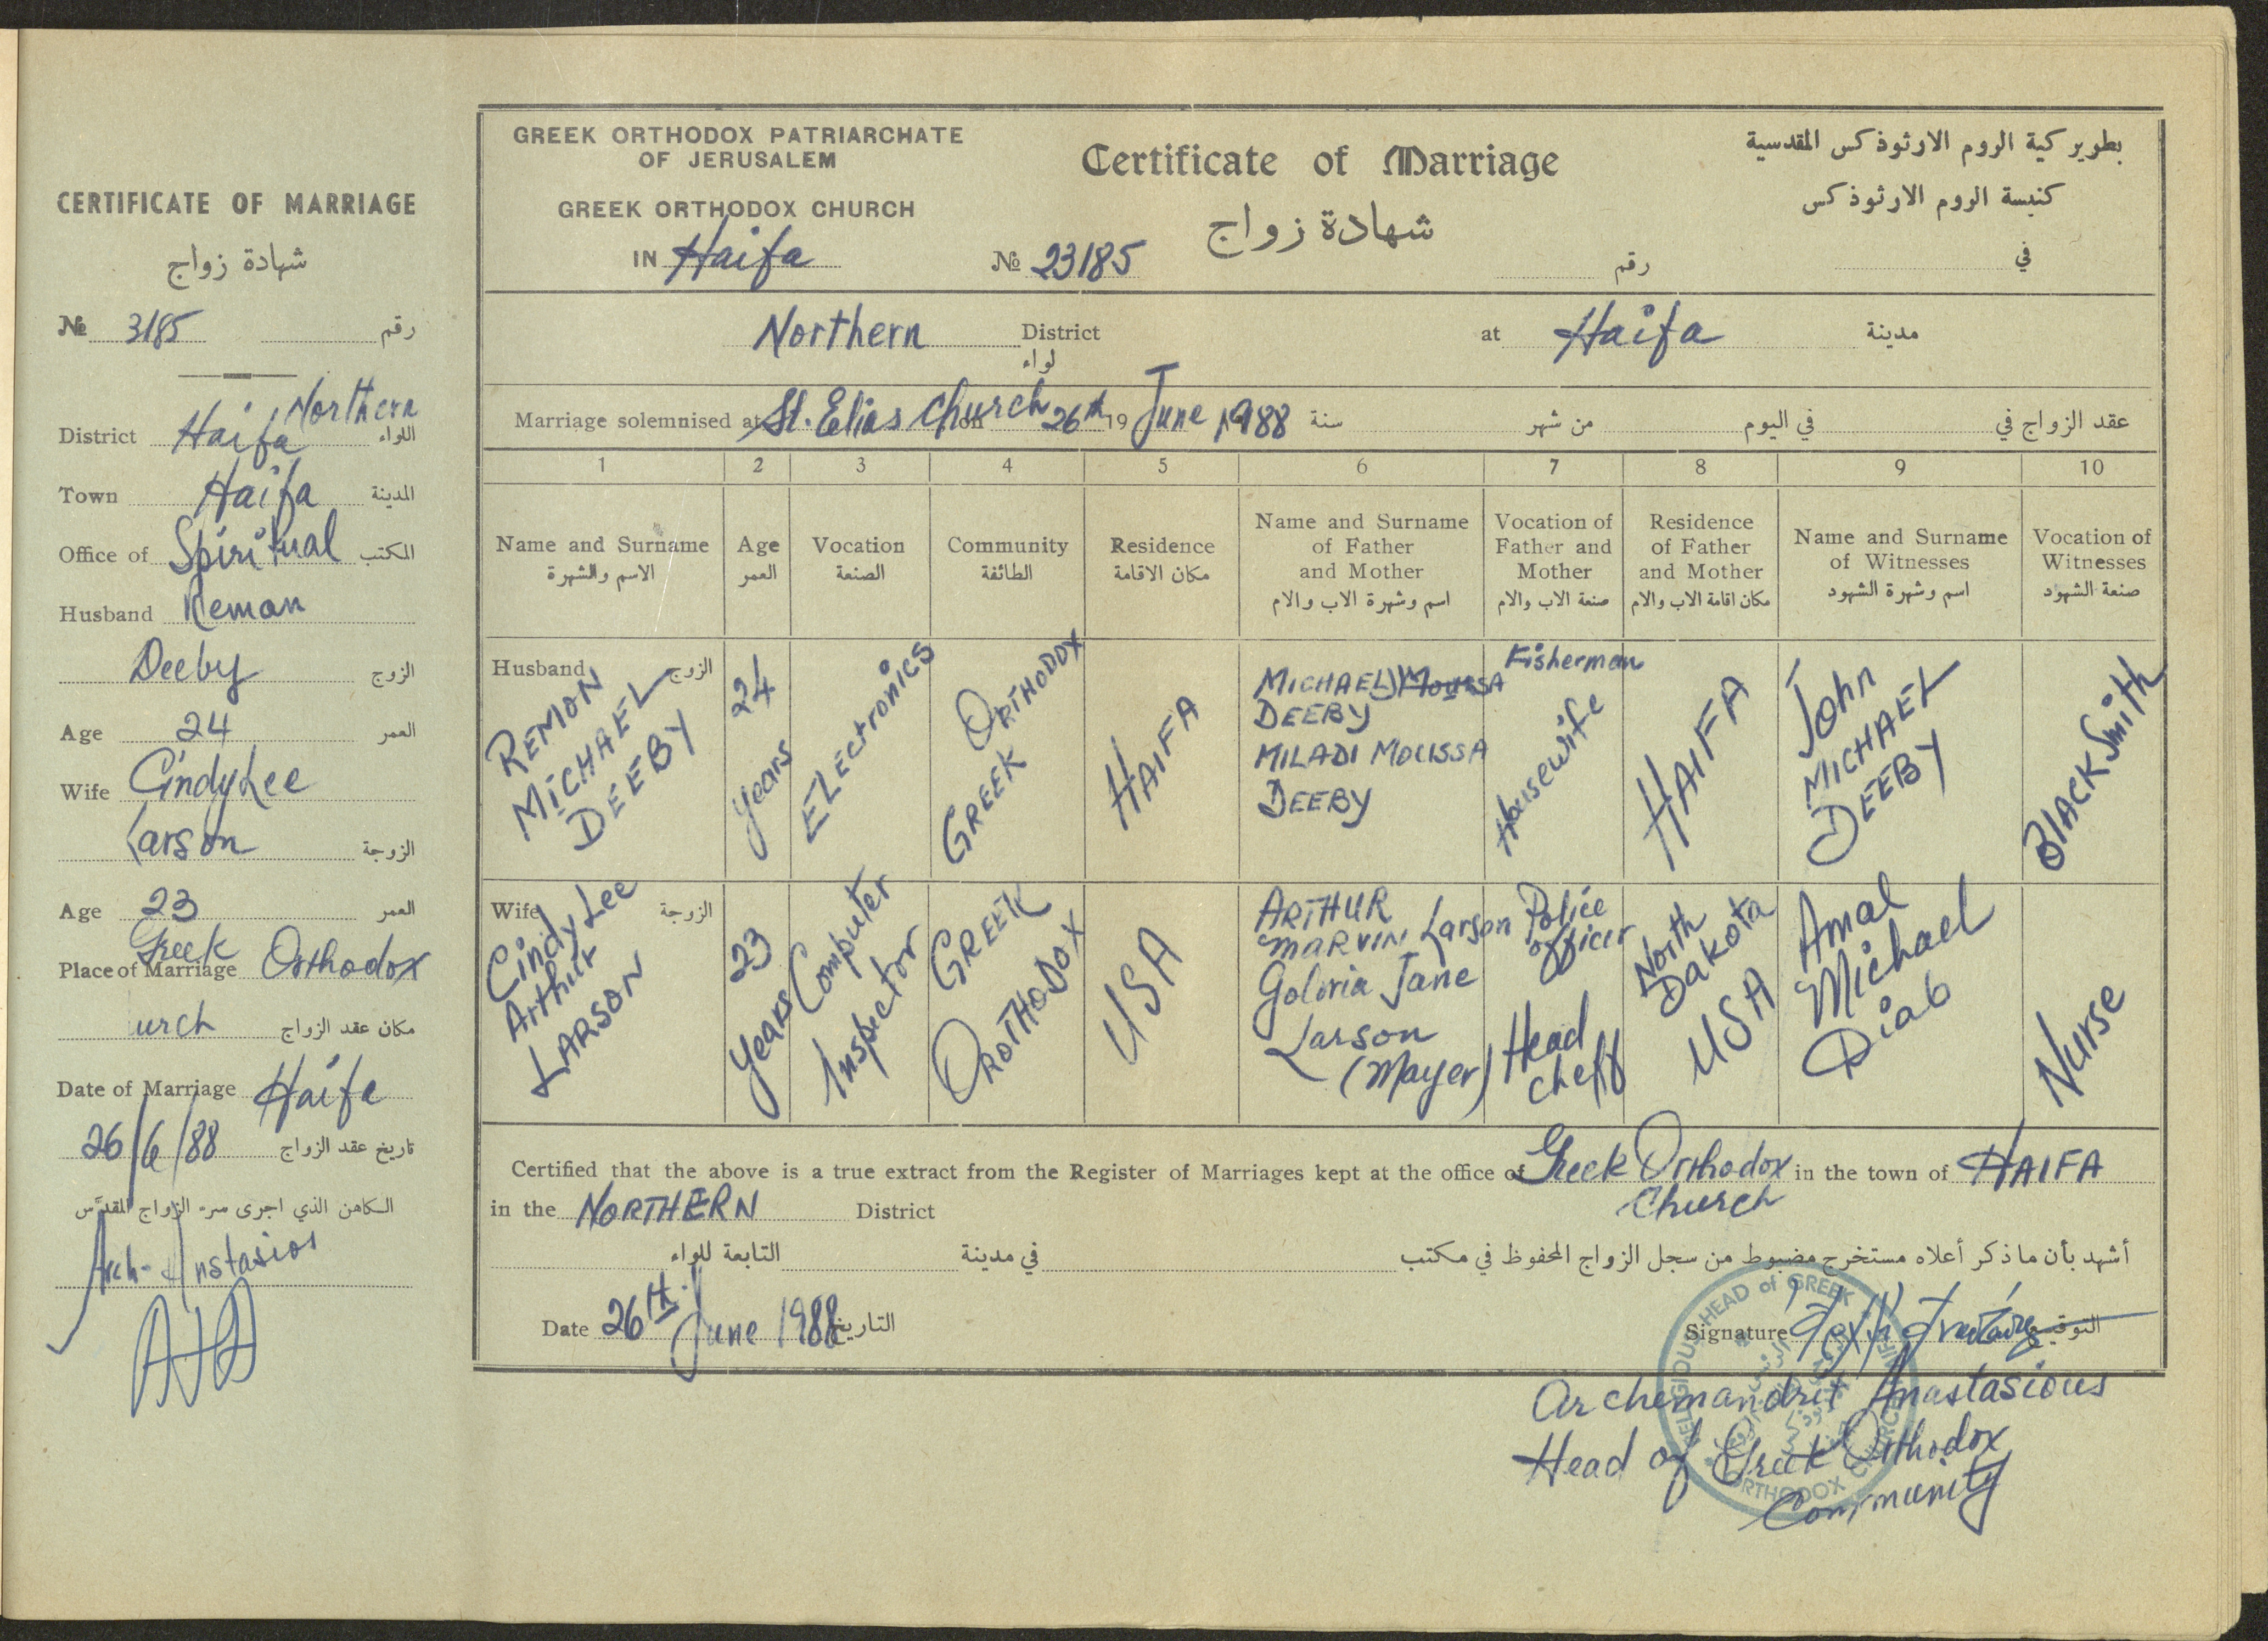 CERTIFICATE OF MARRIAGE
شهادة زواج
№ 3185 رقم
Northern
District Haifa اللواء
Town Haifa المدينة
Office of Spiritual المكتب
Husband Reman
Deeby الزوج
Age 24 العمر
Wife Cindy Lee
Larson الزوجة
Age 23 العمر
Greek
Place of Marriage Orthodox
urch مكان عقد الزواج
Date of Marriage Haifa
26/6/88 تاريخ عقد الزواج
الكاهن الذي اجرى سر الزواج المقدس
Arch- Anstasios
GREEK ORTHODOX PATRIARCHATE
OF JERUSALEM
GREEK ORTHODOX CHURCH
IN Haifa
№ 23185
Certificate of Marriage
شهادة زواج
رقم
بطوير كية الروم الارثوذكس المقدسية
كنيسة الروم الارثوذكس
في
Northern District
لواء
at Haifa مدينة
Marriage solemnised at St. Elias Church on 26th 19 June 1988 سنة من شهر في اليوم عقد الزواج في
1 2 3 4 5 6 7 8 9 10
Name and Surname
الاسم والشهرة
Age
العمر
Vocation
الصنعة
Community
الطائفة
Residence
مكان الاقامة
Name and Surname
of Father
and Mother
اسم وشهرة الاب والام
Vocation of
Father and
Mother
صنعة الاب والام
Residence
of Father
and Mother
مكان اقامة الاب والام
Name and Surname
of Witnesses
اسم وشهرة الشهود
Vocation of
Witnesses
صنعة الشهود
Husband الزوج
REMON
MICHAEL
DEEBY
24
years
ELectronics
GREEK ORTHODOX
HAIFA
MICHAEL Moussa
DEEBY
MILADI MOUSSA
DEEBY
Fisherman
Housewife
HAIFA
John
MICHAEL
DEEBY
BLACKSmith
Wife الزوجة
Cindy Lee
Arthur
LARSON
23
years
Computer
Inspector
GREEK
OROTHODOX
USA
ARTHUR
MARVIN Larson
Goloria Jane
Larson
(Mayer)
Police
officer
Head
cheff
North
Dakota
USA
Amal
Michael
Diab
Nurse
Certified that the above is a true extract from the Register of Marriages kept at the office of Greek Orthodox in the town of HAIFA
Church
in the NORTHERN District
أشهد بأن ما ذكر أعلاه مستخرج مضبوط من سجل الزواج المحفوظ في مكتب في مدينة التابعة للواء
Date 26th June 1988 التاريخ
Signature التوقيع
Archemandrit Anastasious
Head of Greek Orthodox
Community
RELIGIOUS HEAD of GREEK
ORTHODOX CHURCH